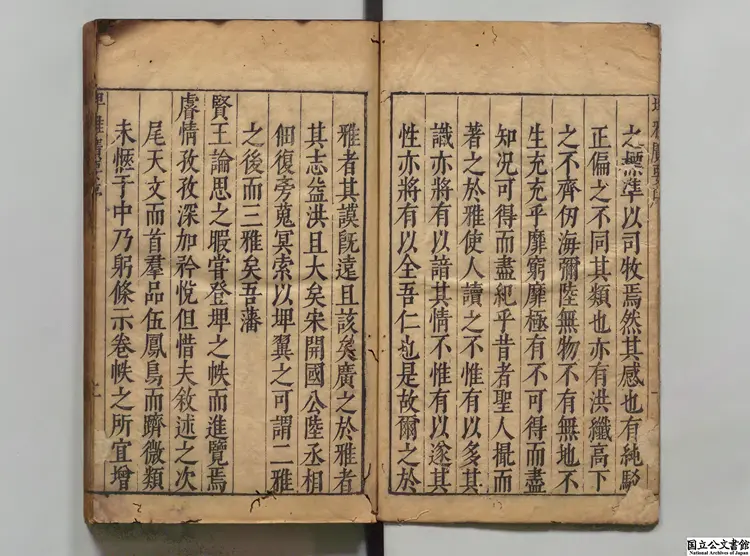 之標準以司牧焉然其感也有純駁
正偏之不同其類也亦有洪纖高下
之不齊仞海彌陸無物不有無地不
生充充乎靡窮靡極有不可得而盡
知况可得而盡紀乎昔者聖人掫而
著之於雅使人讀之不惟有以多其
識亦將有以諳其情不惟有以遂其
性亦將有以全吾仁也是故爾之於
雅者其謨旣遠且該矣廣之於雅者
其志益洪且大矣宋開國公陸丞相
佃復旁蒐冥索以埤翼之可謂二雅
之後而三雅矣吾藩
賢王論思之暇甞登埤之帙而進覽焉
睿情孜孜深加衿悅但惜夫敘述之次
尾天文而首羣品伍鳳鳥而躋微類
未愜于中乃躬條示卷帙之所宜增
国立公文書館
National Archives of Japan